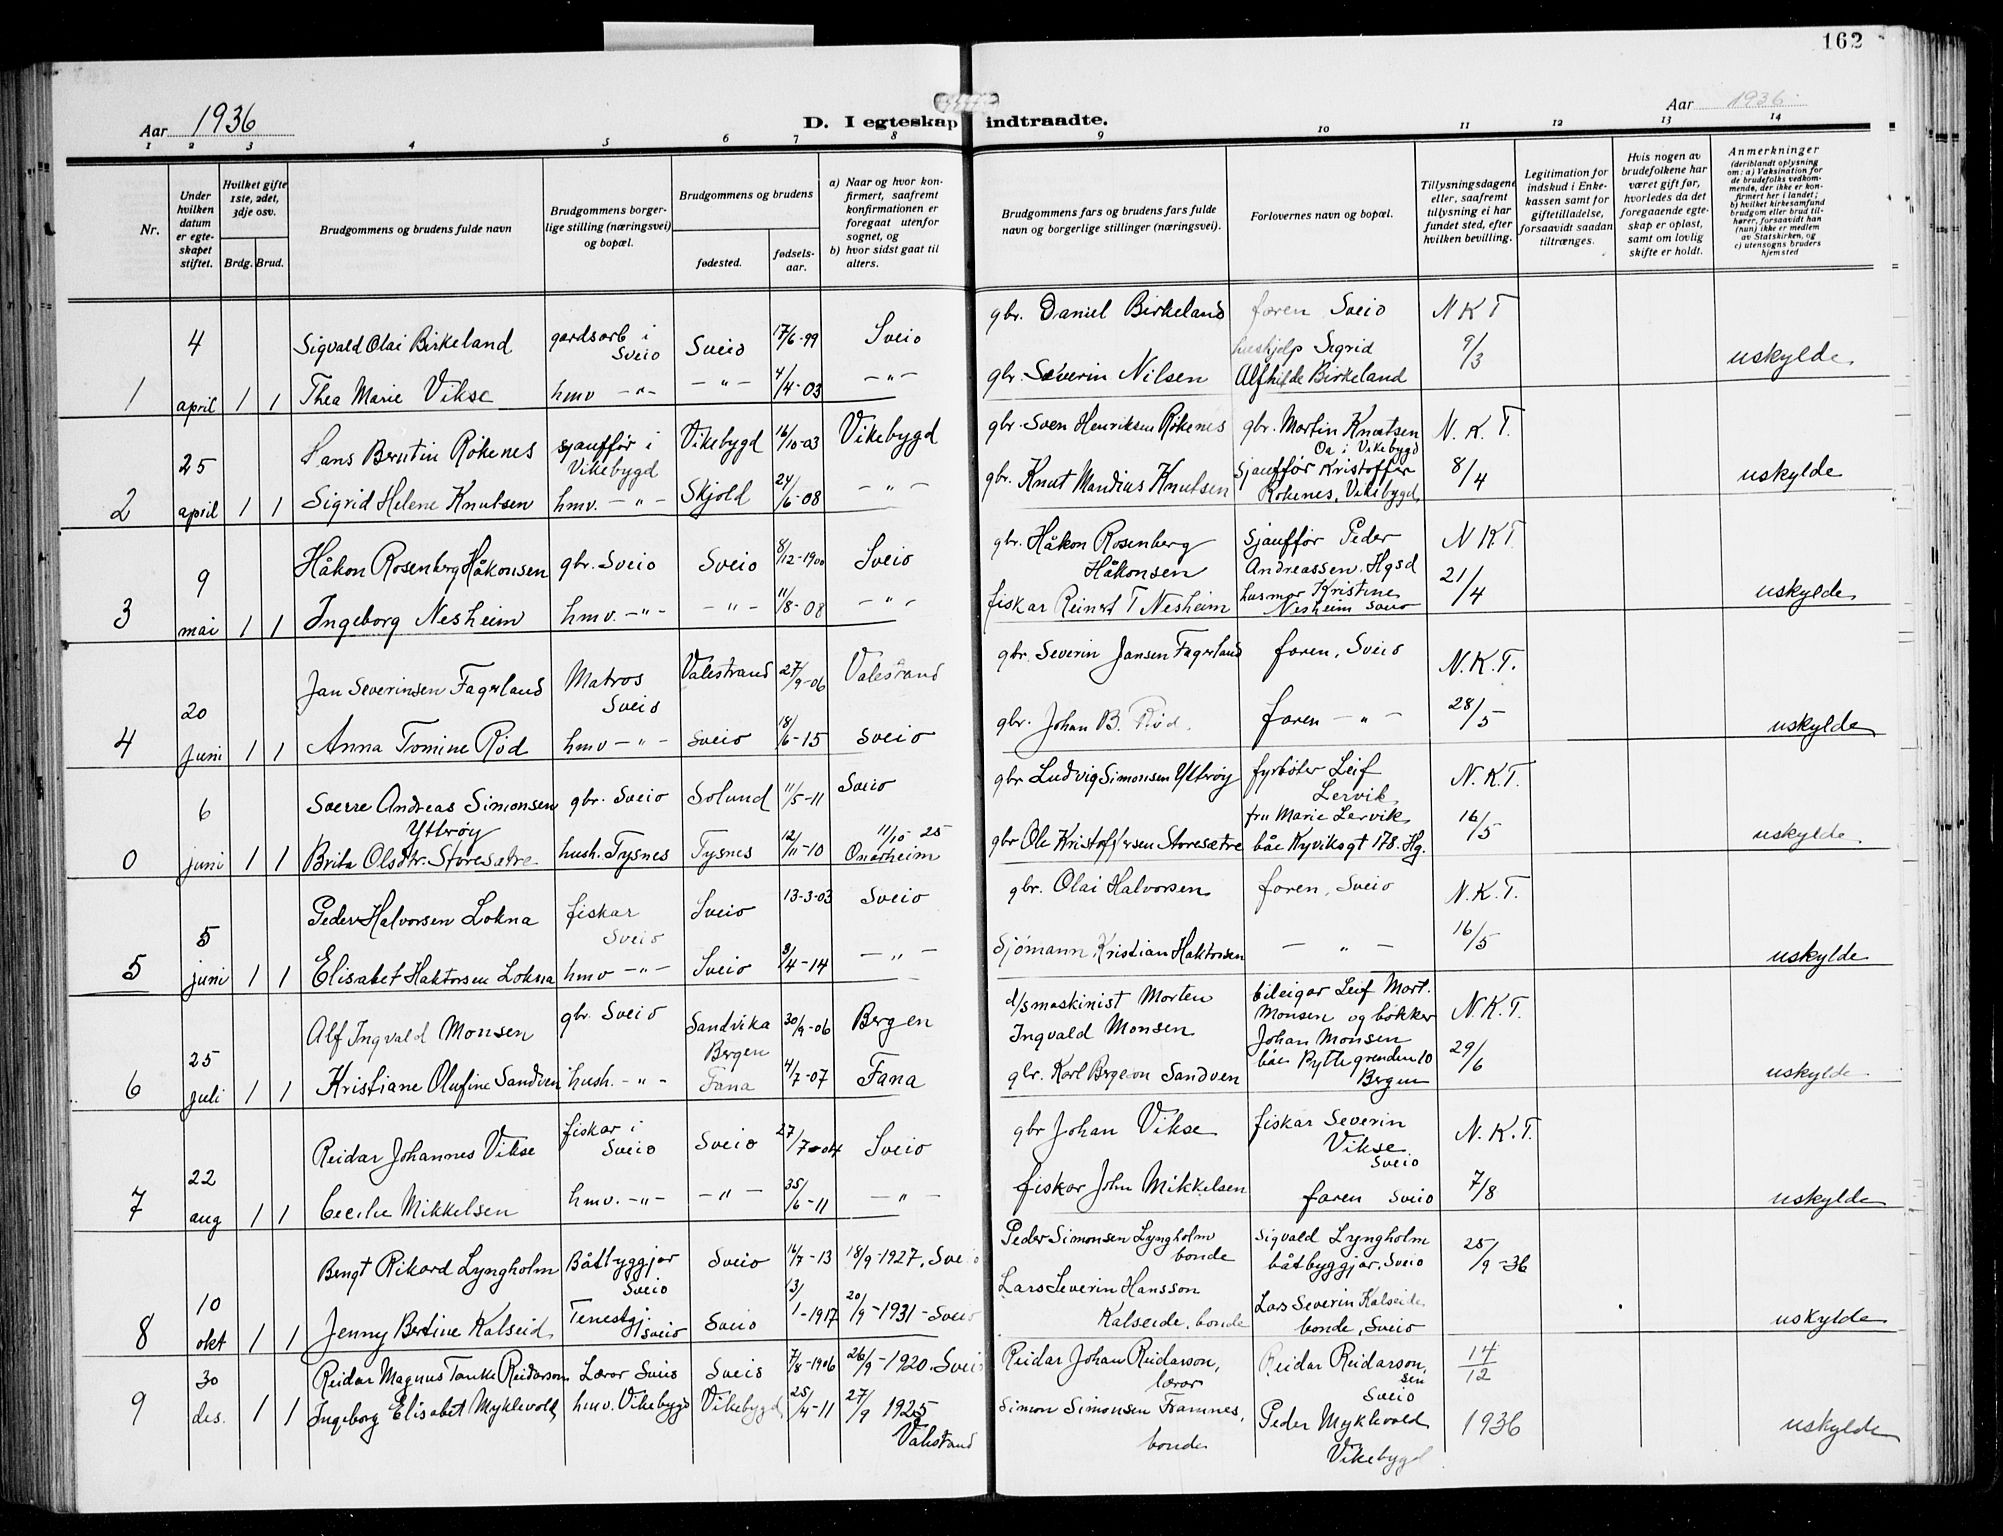 162
Aar 1936
D. I egteskap indtraadte.
Aar 1936
1 2 3 4 5 6 7 8 9 10 11 12 13 14
Nr.
Under hvilken datum er egteskapet stiftet.
Hvilket gifte 1ste, 2det, 3dje osv.
Brdg. Brud.
Brudgommens og brudens fulde navn
Brudgommens borgerlige stilling (næringsvei) og bopæl.
Brudgommens og brudens
fødested.
fødselsaar.
a) Naar og hvor konfirmert, saafremt konfirmationen er foregaat utenfor sognet, og
b) hvor sidst gaat til alters.
Brudgommens fars og brudens fars fulde navn og borgerlige stillinger (næringsvei).
Forlovernes navn og bopæl.
Tillysningsdagene eller, saafremt tillysning ei har fundet sted, efter hvilken bevilling.
Legitimation for indskud i Enkekassen samt for giftetilladelse, forsaavidt saadan tiltrænges.
Hvis nogen av brudefolkene har været gift før, hvorledes da det foregaaende egteskap er opløst, samt om lovlig skifte er holdt.
Anmerkninger (deriblandt oplysning om: a) Vaksination for de brudefolks vedkommende, der ikke er konfirmert her i landet; b) hvilket kirkesamfund brudgom eller brud tilhører, forsaavidt han (hun) ikke er medlem av Statskirken, og c) utensogns bruders hjemsted
4 Sigvald Olai Birkeland gardsarb i Sveio Sveio 17/6-99 Sveio gbr. Daniel Birkeland faren Sveio N K T
1 april 1 1 Thea Marie Vikse hmv -"- -"- 4/4-03 -"- gbr. Severin Nilsen hushjelp Sigrid Alfhilde Birkeland 9/3 uskylde
25 Hans Berntin Rökenes sjauffør i Vikebygd Vikebygd 16/10-03 Vikebygd gbr. Sven Henriksen Rökenes gbr. Martin Knutsen Oa i Vikebygd N. K. T.
2 april 1 1 Sigrid Helene Knutsen hmv. -"- Skjold 24/6-08 -"- gbr. Knut Mandius Knutsen Sjauffør Kristoffer Rökenes, Vikebygd 8/4 uskylde
9 Håkon Rosenberg Håkonsen gbr. Sveio Sveio 8/12-1900 Sveio gbr. Håkon Rosenberg Håkonsen Sjauffør Peder Andreassen. Hgsd N K T.
3 mai 1 1 Ingeborg Nesheim hmv. -"- -"- 11/8-08 -"- fiskar Reinert T Nesheim husmor Kristine Nesheim Sveio 21/4 uskylde
20 Jan Severinsen Fagerland Matros Sveio Valestrand 27/9-06 Valestrand gbr. Severin Jansen Fagerland faren, Sveio N. K. T.
4 Juni 1 1 Anna Tomine Rød hmv -"- Sveio 18/6-15 Sveio gbr. Johan B. Rød. faren -"- 28/5 uskylde
6 Sverre Andreas Simonsen Ytterøy gbr. Sveio Solund 11/5-11 Sveio gbr Ludvig Simonsen Ytterøy fyrbøter Leif Lervik N. K. T.
0 juni 1 1 Brita Olsdtr. Storesætre hush. Tysnes Tysnes 12/11-10 11/10 25 Onarheim gbr Ole Kristoffersen Storesætre fru Marie Lervik båe Kyviksgt 178. Hg. 16/5 uskylde
5 Peder Halvorsen Lokna fiskar Sveio Sveio 13-3-03 Sveio gbr. Olai Halvorsen faren, Sveio N. K. T.
5 juni 1 1 Elisabet Haktorsen Lokna hmv -"- Sveio 3/4-14 -"- Sjömann Kristian Haktorsen -"- 16/5 uskylde
25 Alf Ingvald Monsen gbr. Sveio Sandvika Bergen 30/9-06 Bergen d/smaskinist Morten Ingvald Monsen bileigar Leif Mort. Monsen og bøkker Johan Monsen N. K. T.
6 juli 1 1 Kristiane Olufine Sandven hush. -"- Fana 4/7-07 Fana gbr. Karl Bergeson Sandven båe Ryttegrenden 10 Bergen 29/6 uskylde
22 Reidar Johannes Vikse fiskar i Sveio Sveio 27/7-04 Sveio gbr Johan Vikse fiskar Severin Vikse Sveio N. K. T.
7 aug 1 1 Cecilie Mikkelsen hmv. -"- -"- 25/6-11 -"- fiskar John Mikkelsen faren Sveio 7/8 uskylde
10 Bengt Rikard Lyngholm Båtbyggjar Sveio Sveio 16/7-13 18/9-1927, Sveio Peder Simonsen Lyngholm bonde Sigvald Lyngholm båtbyggjar, Sveio 25/9-36
8 okt 1 1 Jenny Bertine Kalseid Tenestgj. Sveio Sveio 13/1-1917 20/9-1931-Sveio Lars Severin Hansson Kalseide, bonde Lars Severin Kalseide bonde, Sveio uskylde
30 Reidar Magnus Tanke Reidarson Lærar Sveio Sveio 7/8-1906 26/9-1920. Sveio Reidar Johan Reidarson, lærar Reidar Reidarson, sen Sveio 14/12
9 des. 1 1 Ingeborg Elisabet Myklevold hmv. Vikebygd Vikebygd 25/4-11 27/9 1925 Valestrand Simon Simonsen Framnes, bonde Peder Myklevold Vikebygd 1936 uskylde